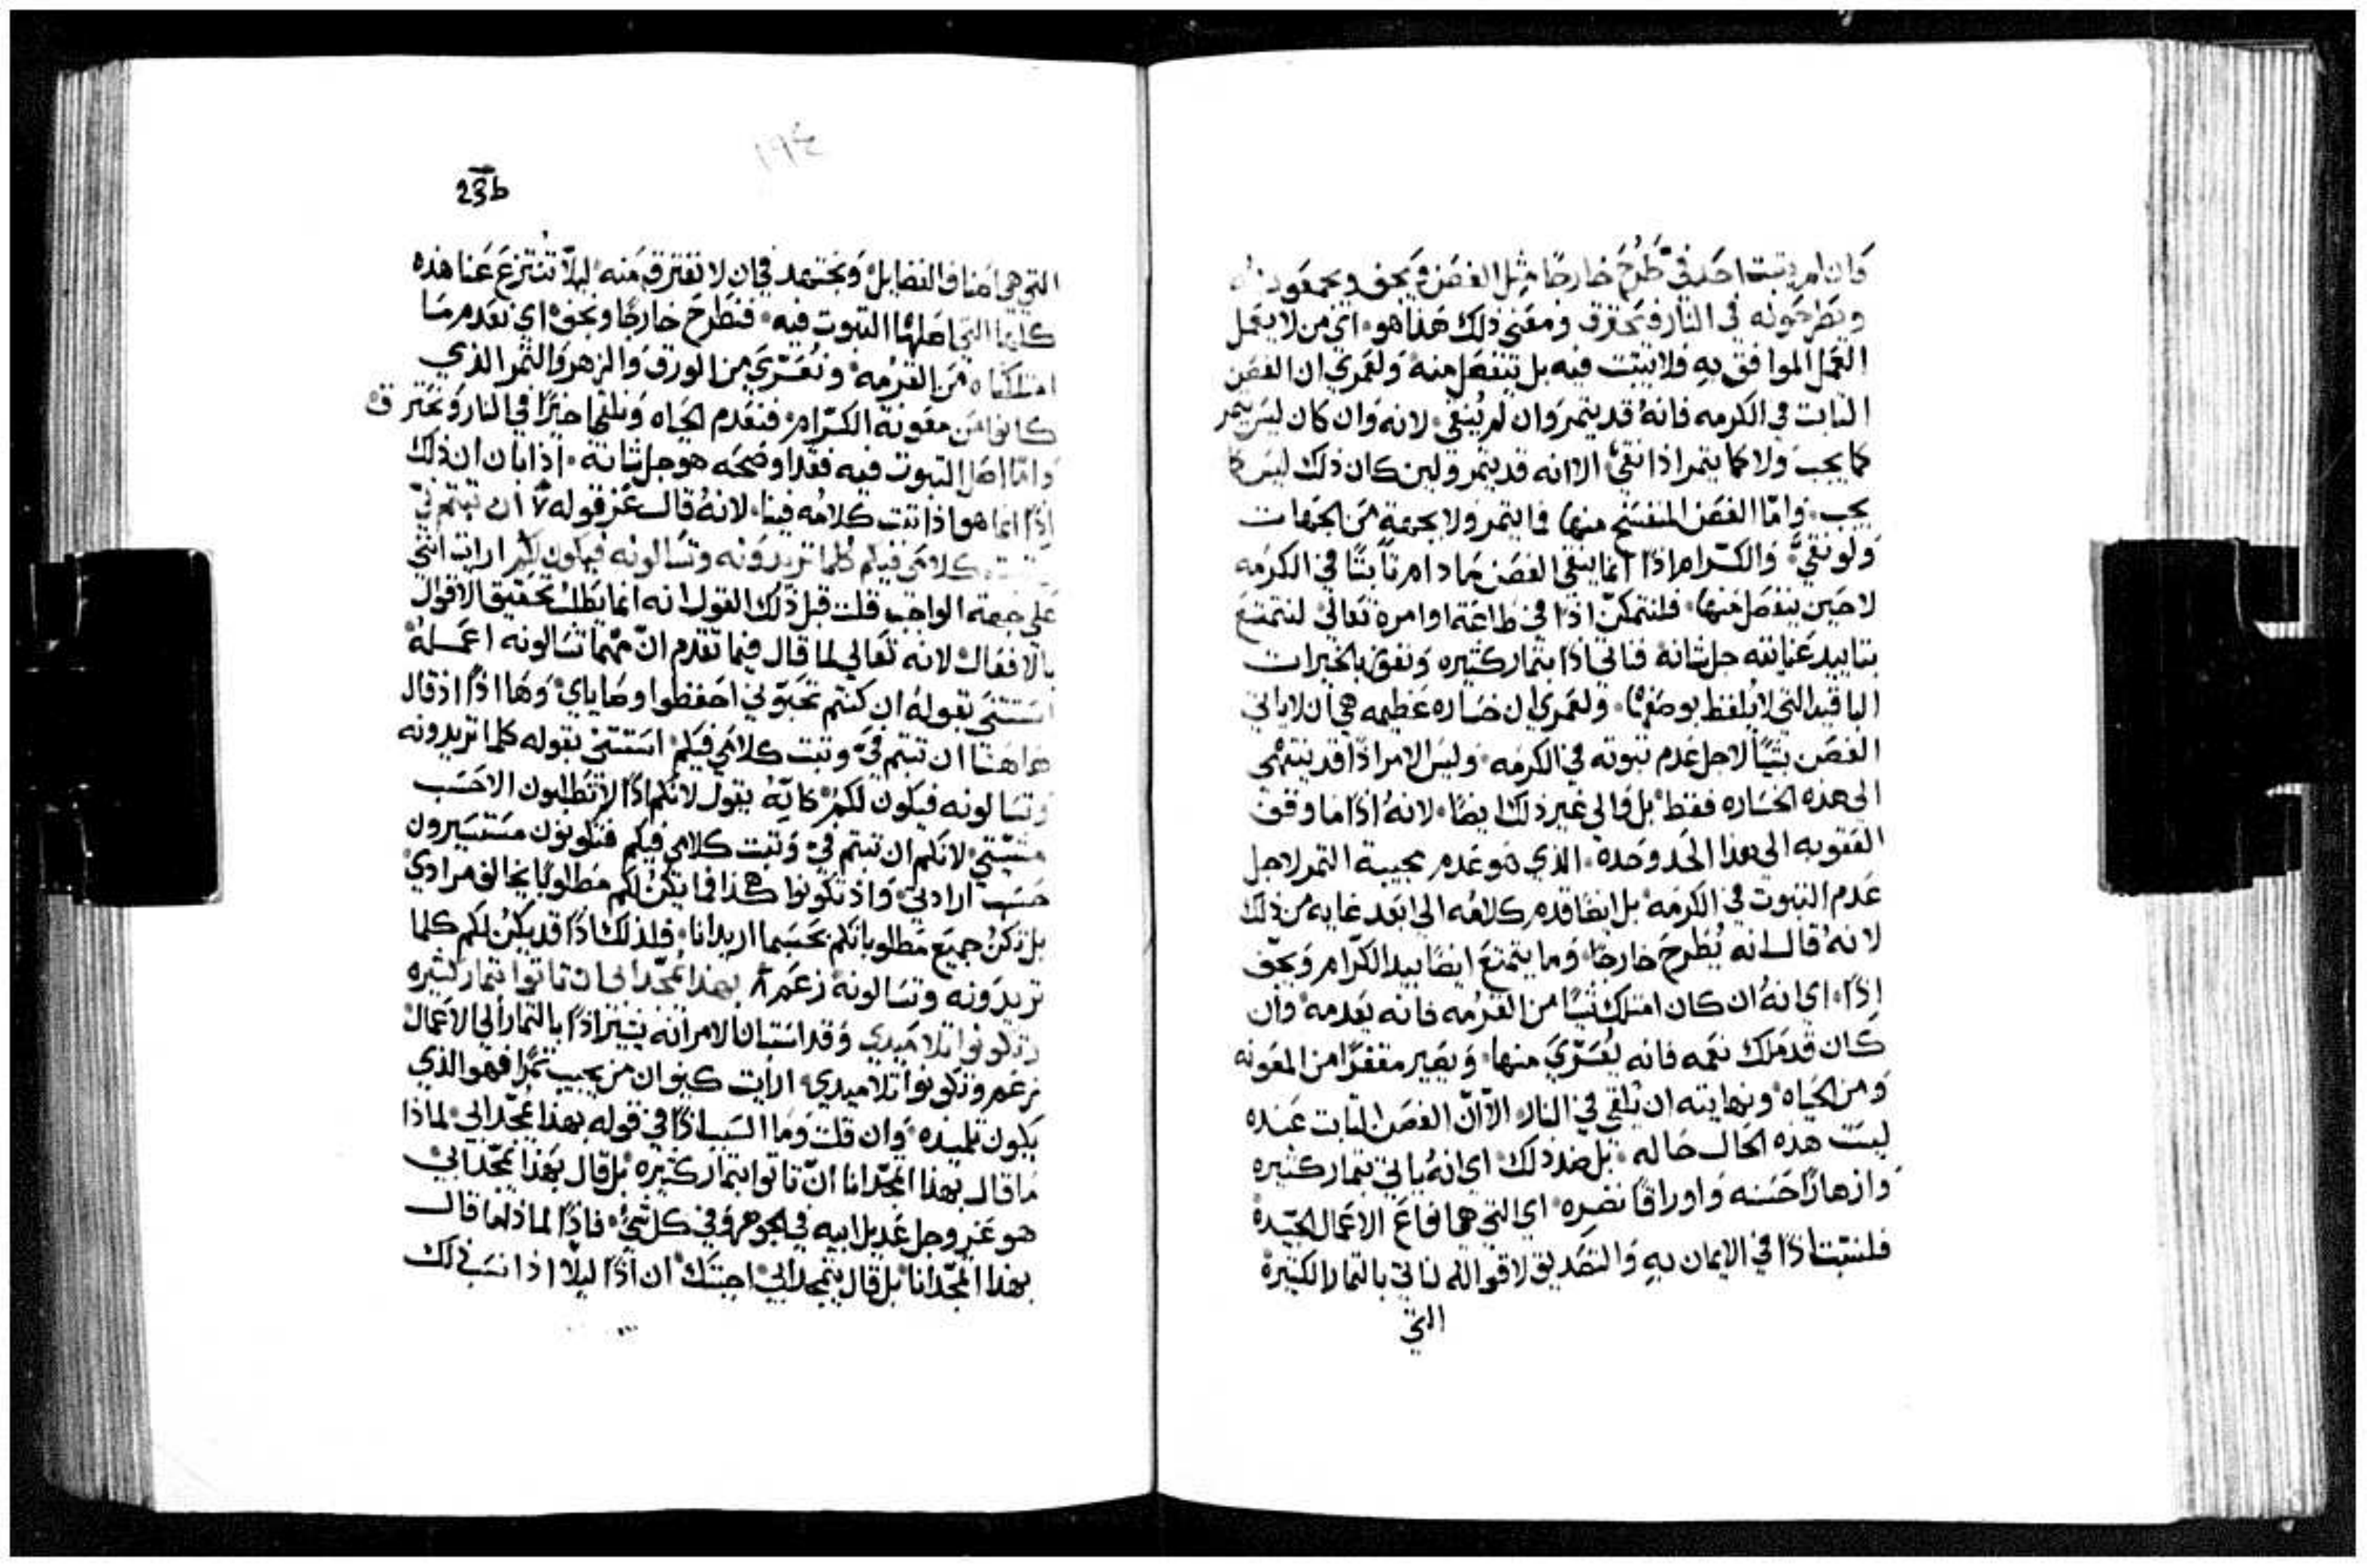 فان لم يثبت احد فيّ طُرح خارجًا مثل الغصن ويجف ويجمعونه
ويطرحونه في النار فيحترق ومعنى ذلك هذا هو اي من لا يعمل
العمل الموافق به فلا يثبت فيه بل ينفصل منه ولعمري ان الغصن
الثابت في الكرمه فانه قد يثمر وان لم يُنقى لانه وان كان ليس يثمر
كما يجب ولا كما يثمر اذا نقي الا انه قد يثمر ولين كان ذلك ليس كما
يجب واما الغصن المنفسخ منها فما يثمر ولا بجهة من الجهات
ولو نقيّ والكرّام اذًا انما ينقي الغصن ما دام ثابتًا في الكرمه
لا حين ينفصل منها فلنتمكن اذًا في طاعة اوامره تعالى لنتمتع
بتاييد عنايته جل شانه فناتي اذًا بثمار كثيره ونفوز بالخيرات
الباقيه التي لا يُلفظ بوصفها ولعمري ان خساره عظيمه هي ان لا ياتي
الغصن بشيًا لاجل عدم ثبوته في الكرمه وليس الامر اذًا قد ينتهي
الى هذه الخساره فقط بل والى غير ذلك ايضًا لانه اذًا ما وقف
العقوبه الى هذا الحد وحده الذي هو عدم مجيبة الثمر لاجل
عدم الثبوت في الكرمه بل ايضًا قدم كلامه الى ابعد غايه من ذلك
لانه قال انه يُطرح خارجًا وما يتمتع ايضًا بيد الكرّام ويجف
اذًا اي انه ان كان امتلك شيًا من القرمه فانه يعدمه وان
كان قد ملك نعمه فانه يُعرّي منها ويصير مقفرًا من المعونه
ومن الحياه ونهايته ان يُلقي في النار الا ان الغصن الثابت عنده
ليست هذه الحال حاله بل ضد ذلك اي انه ياتي بثمار كثيره
وازهارًا حسنه واوراقًا نضره اي التي هي انواع الاعمال الجيّدة
فلنثبت اذًا في الايمان به والتصديق لاقواله لناتي بالثمار الكثيرة
التي
١٩٤
23b
التي هي اصناف الفضايل ونجتهد في ان لا نفترق منه ليلا تنتزع عنا هذه
كلها التي اصلها الثبوت فيه فنطرح خارجًا ونجف اي نعدم ما
امتلكناه من القرمه ونُعرّي من الورق والزهر والثمر الذي
كانوا من معونة الكرّام فنعدم الحياه ونلقى اخيرًا في النار ونحترق
واما اصل الثبوت فيه فقد اوضحه هو جل شانه اذ ابان ان ذلك
اذًا انما هو اذا ثبت كلامه فينا لانه قال عز قوله ٧ ان ثبتم فيّ
وثبت كلامي فيكم كلما تريدونه وتسالونه فيكون لكم ارايت انني
على جهة الواجب قلت قبل ذلك القول انه انما يطلب تحقيق الاقوال
بالافعال لانه تعالى لما قال فيما تقدم ان مهما تسالونه اعمله
استثنى بقوله ان كنتم تحبّوني احفظوا وصاياي وها اذًا اذ قال
هاهنا ان ثبتم فيّ وثبت كلامي فيكم استثنى بقوله كلما تريدونه
وتسالونه فيكون لكم كانّه يقول لانكم اذًا لا تطلبون الا حسب
مشيّتي لانكم ان ثبتم فيّ وثبت كلامي فيكم فتكونون مستسيرون
حسب ارادتي واذ تكونوا هكذا فما يكن لكم مطلوبًا يخالف مرادي
بل تكن جميع مطلوباتكم بحسبما اريد انا فلذلك اذًا قد يكن لكم كلما
تريدونه وتسالونه زعم ٨ بهذا يُمجّد ابي ان تاتوا بثمار كثيره
وتكونوا تلاميدي وقد استبان الامر انه يشير اذًا بالثمار الي الاعمال
زعم وتكونوا تلاميدي ارايت كيف ان من يجيب ثمرًا فهو الذي
يكون تلميذه وان قلت وما السبب اذًا في قوله بهذا يُمجّد ابي لماذا
ما قال بهذا اُمجّد انا ان تاتوا بثمار كثيره بل قال بهذا يُمجّد ابي
هو عز وجل عديل ابيه في الجوهر وفي كل شيء فاذًا لماذا ما قال
بهذا اُمجّد انا بل قال يتمجد ابي اجبتك ان اذًا ليلا اذا نسب ذلك